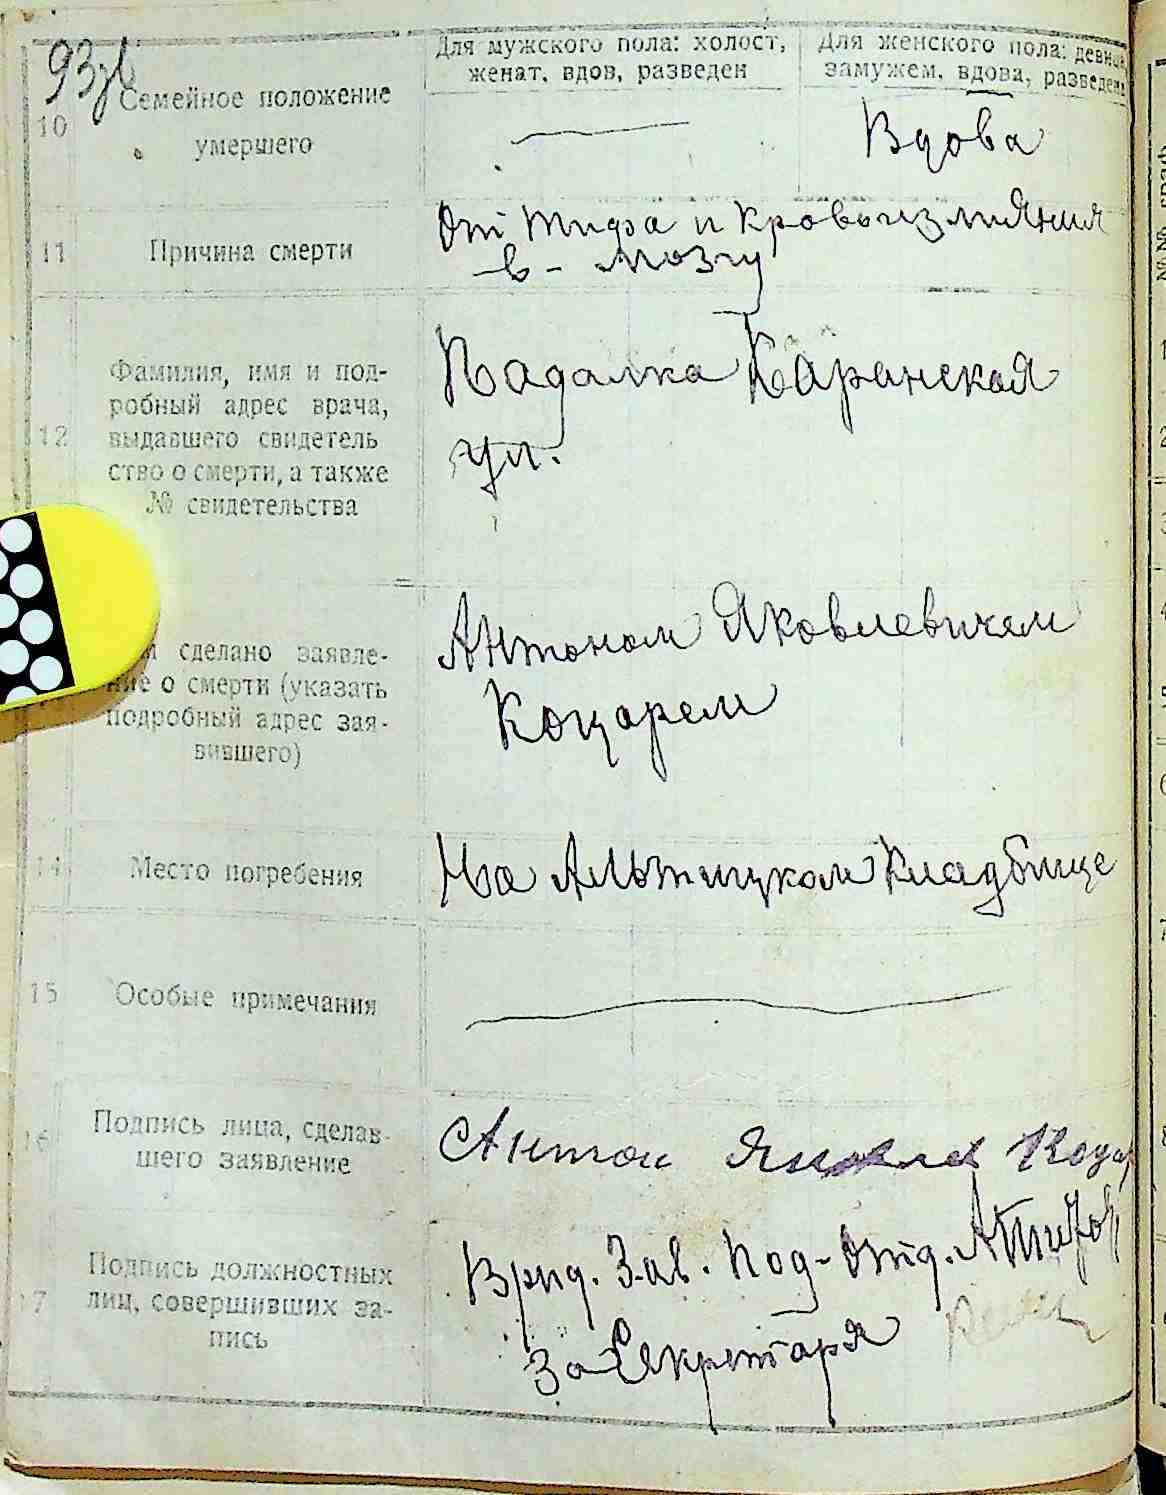 93зв
Для мужского пола: холост,
женат, вдов, разведен
Для женского пола: девица,
замужем, вдова, разведена
10
Семейное положение
умершего
Вдова
11
Причина смерти
От тифа и кровоизлияния
в - мозгу
12
Фамилия, имя и под-
робный адрес врача,
выдавшего свидетель
ство о смерти, а также
№ свидетельства
Падалка Каранская
ул.
сделано заявле-
ние о смерти (указать
подробный адрес зая-
вившего)
Антоном Яковлевичем
Коцарем
14
Место погребения
На Альтицком Кладбище
15
Особые примечания
16
Подпись лица, сделав-
шего заявление
Антон
17
Подпись должностных
лиц, совершивших за-
пись
Врид. Зав. Под-Отд.
За Секретаря